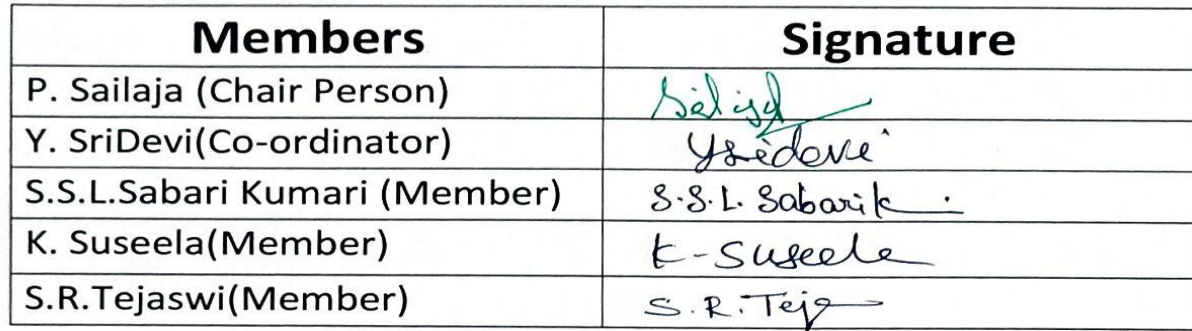 Members Signature
P. Sailaja (Chair Person) Sailaja
Y. SriDevi(Co-ordinator) YSridevi
S.S.L.Sabari Kumari (Member) S.S.L. Sabarik
K. Suseela(Member) K-Suseela
S.R.Tejaswi(Member) S.R. Teja